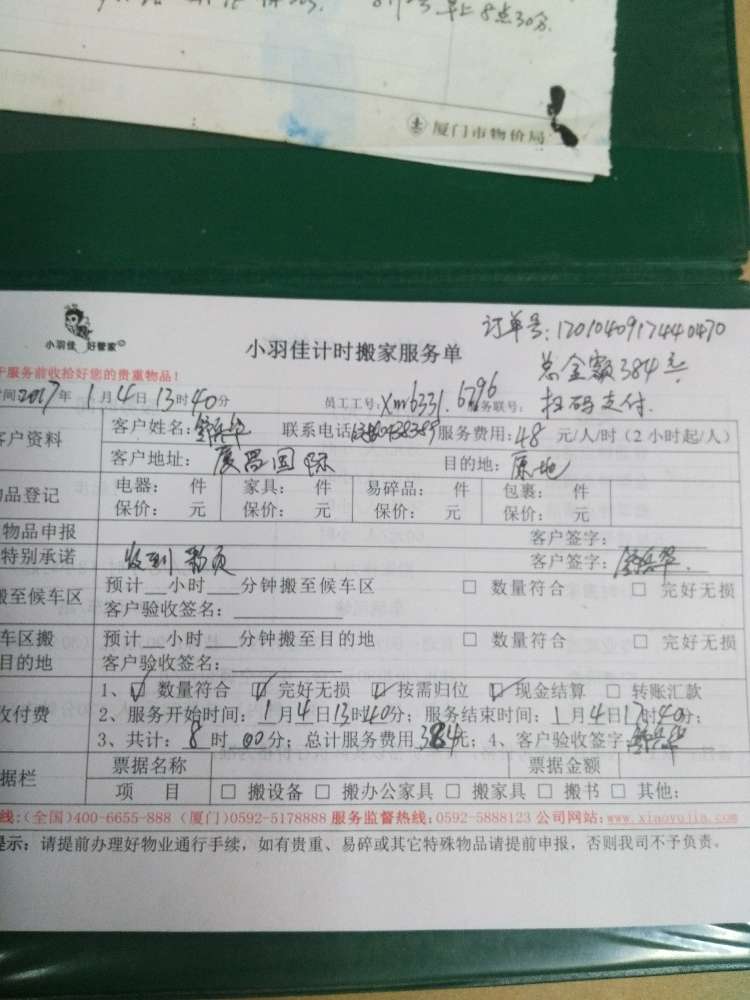 早上8点30分.
厦门市物价局
小羽佳 好管家
订单号:1701040917440470
小羽佳计时搬家服务单
总金额384元
服务前收拾好您的贵重物品!
扫码支付.
间2017年1月4日13时40分 员工工号:xm6331.6796 服务联号:
客户资料
客户姓名: 联系电话 服务费用:48 元/人/时(2小时起/人)
客户地址: 国际 目的地:原地
品登记
电器: 件 家具: 件 易碎品: 件 包裹: 件
保价: 元 保价: 元 保价: 元 保价: 元
物品申报 客户签字:
特别承诺 收到 客户签字:
搬至候车区
预计__小时__分钟搬至候车区 □ 数量符合 □ 完好无损
客户验收签名:
车区搬
目的地
预计__小时__分钟搬至目的地 □ 数量符合 □ 完好无损
客户验收签名:
收付费
1、☑ 数量符合 ☑ 完好无损 ☑ 按需归位 ☑ 现金结算 □ 转账汇款
2、服务开始时间:1月4日13时40分;服务结束时间:1月4日17时40分;
3、共计:8时00分;总计服务费用384元;4、客户验收签字
据栏
票据名称 票据金额
项 目 □ 搬设备 □ 搬办公家具 □ 搬家具 □ 搬书 □ 其他:
线:(全国)400-6655-888 (厦门)0592-5178888 服务监督热线:0592-5888123 公司网站:www.xiaoyujia.com
提示:请提前办理好物业通行手续,如有贵重、易碎或其它特殊物品请提前申报,否则我司不予负责。